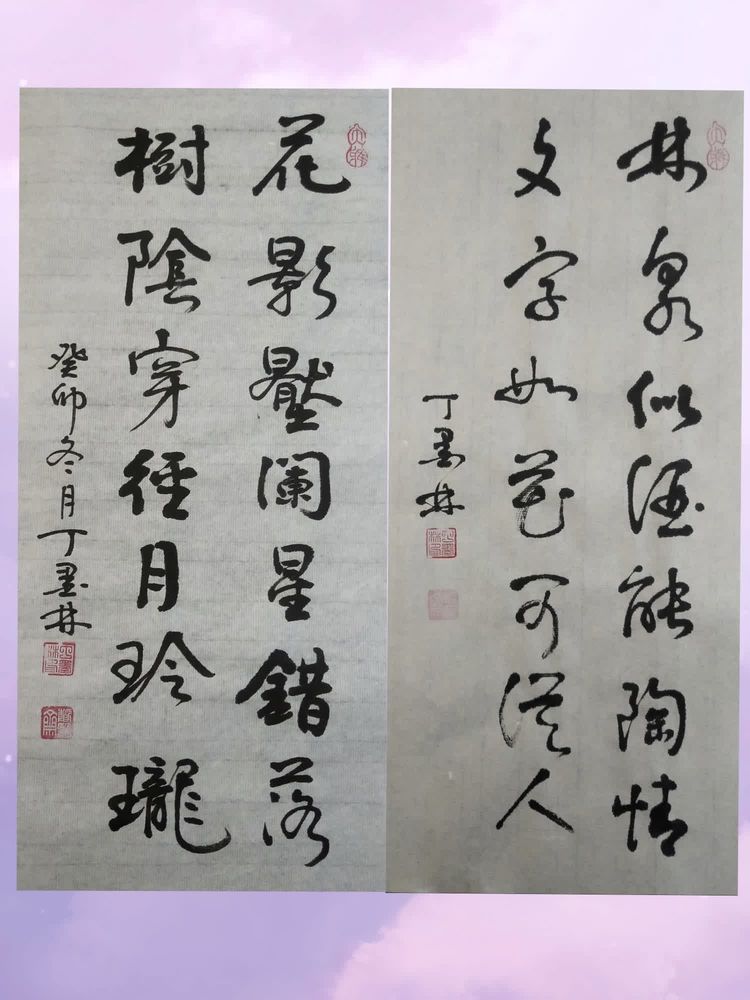 林泉似酒能陶情
文字如花可人
丁墨林
花影壓闌星錯落
樹陰穿徑月玲瓏
癸卯冬月丁墨林